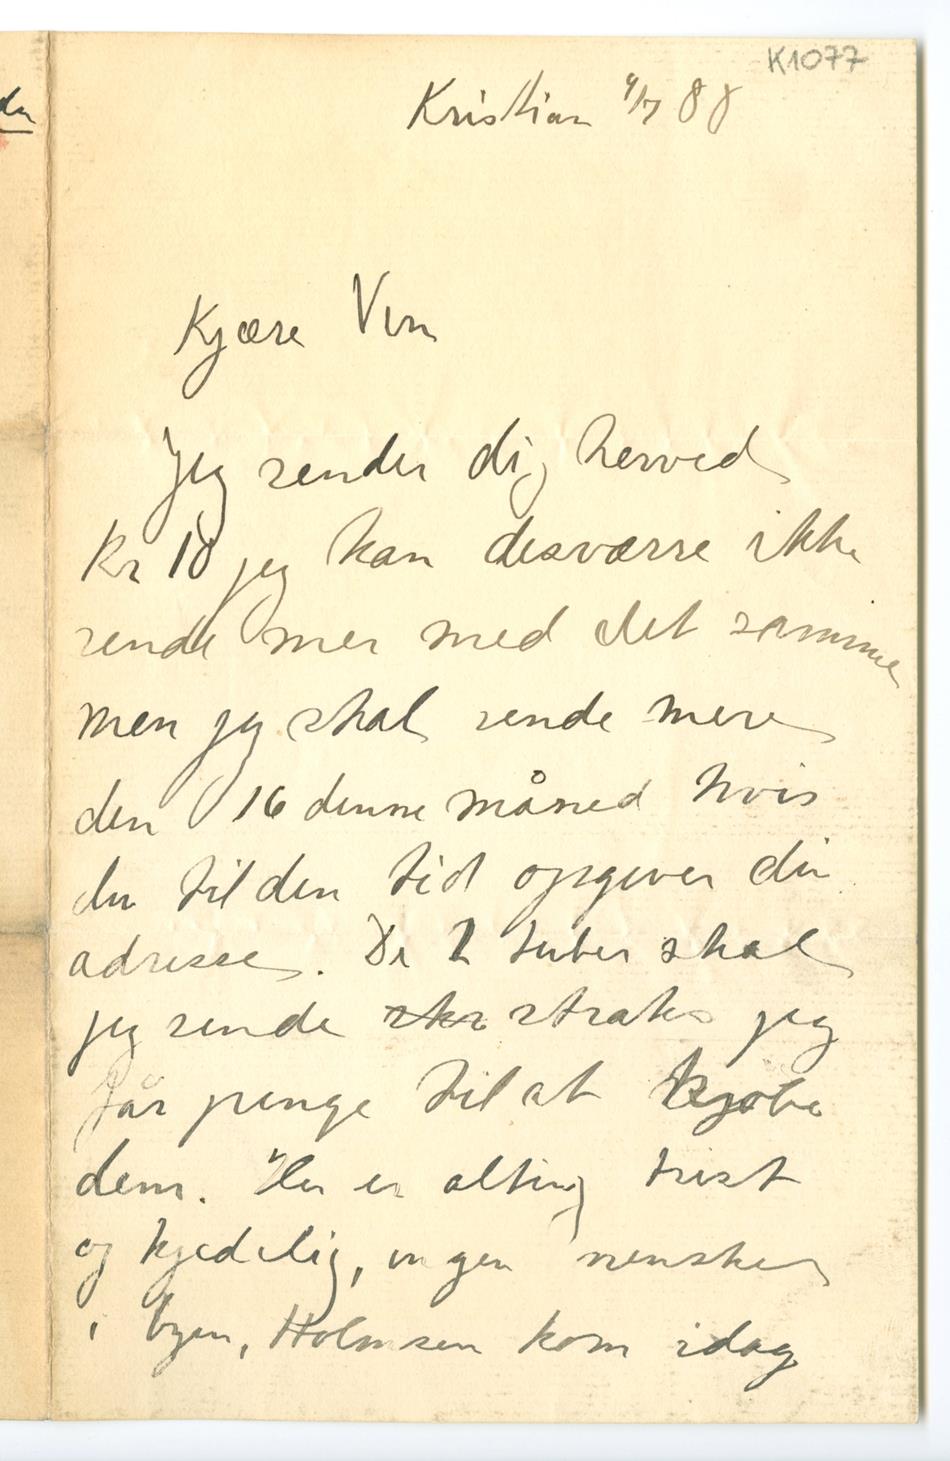 K1077
Kristian 4/7 88
Kjære Ven
Jeg sender dig herved
Kr 10 jeg kan desværre ikke
sende mer med det samme
men jeg skal sende mere
den 16 denne måned hvis
du til den tid opgiver din
adresse. De 2 tuber skal
jeg sende skr straks jeg
får penge til at kjøbe
dem. Her er alting trist
og kjedelig, ingen mensker
i byen, Holmsen kom idag